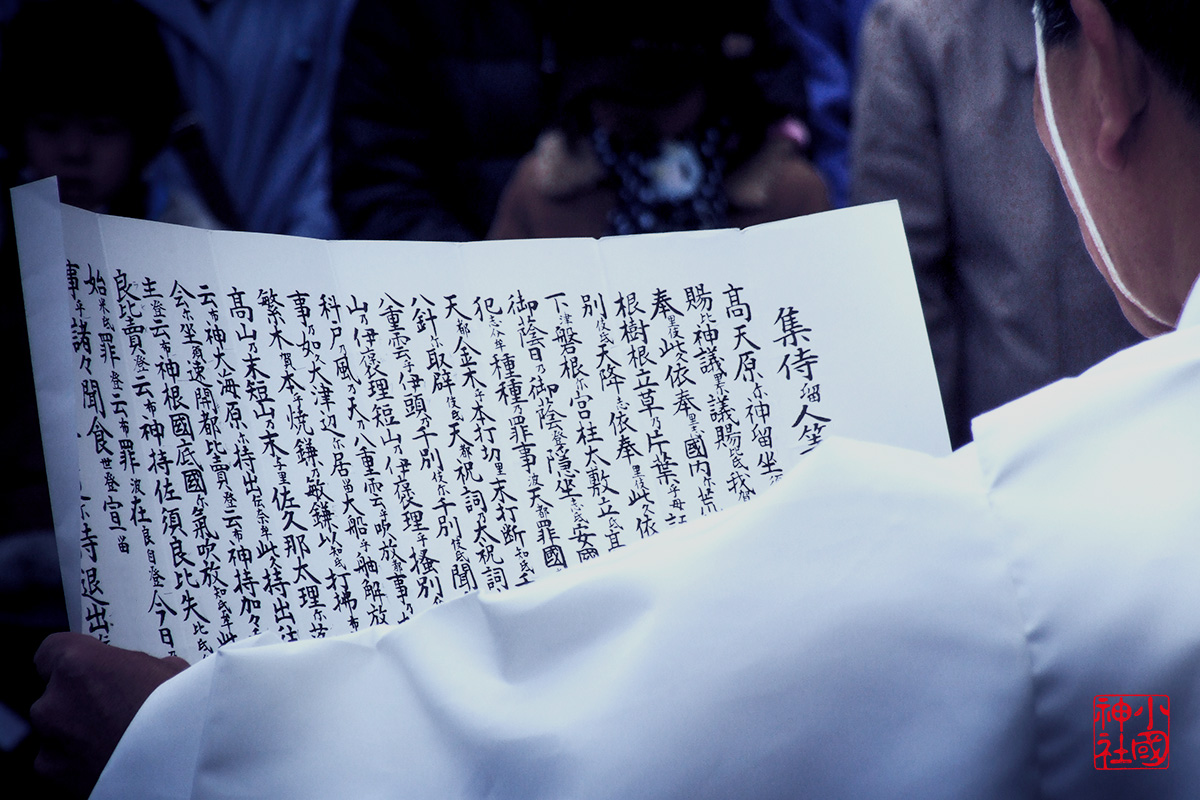 集侍留人等
高天原尓神留坐
賜比神議里尓議賜比氐我
奉里伎此久依奉里志國内尓荒
根樹根立草乃片葉乎母
別伎氐天降志依奉里伎此久依
下津磐根尓宮柱太敷立氐
御蔭日乃御蔭登隠坐志氐安國
犯志介牟種種乃罪事波天都罪國
天都金木乎本打切里末打断知氐千
八針尓取辟伎氐天都祝詞乃太祝詞
八重雲乎伊頭乃千別伎尓千別伎氐聞
山乃伊褒理短山乃伊褒理乎掻別
科戸乃風乃天乃八重雲乎吹放都事乃
事乃如久大津辺尓居留大船乎舳解放
繁木賀本乎焼鎌乃敏鎌以知氐打掃布
高山乃末短山乃末与里佐久那太理尓落
云布神大海原尓持出伝奈牟此久持出往
会尓坐須速開都比賣登云布神持加々
主登云布神根國底國尓氣吹放知氐牟此
良比賣登云布神持佐須良比失比氐
始米氐罪登云布罪波在良自登今日乃
事乎諸々聞食世登宣留
尓持退出
小國神社